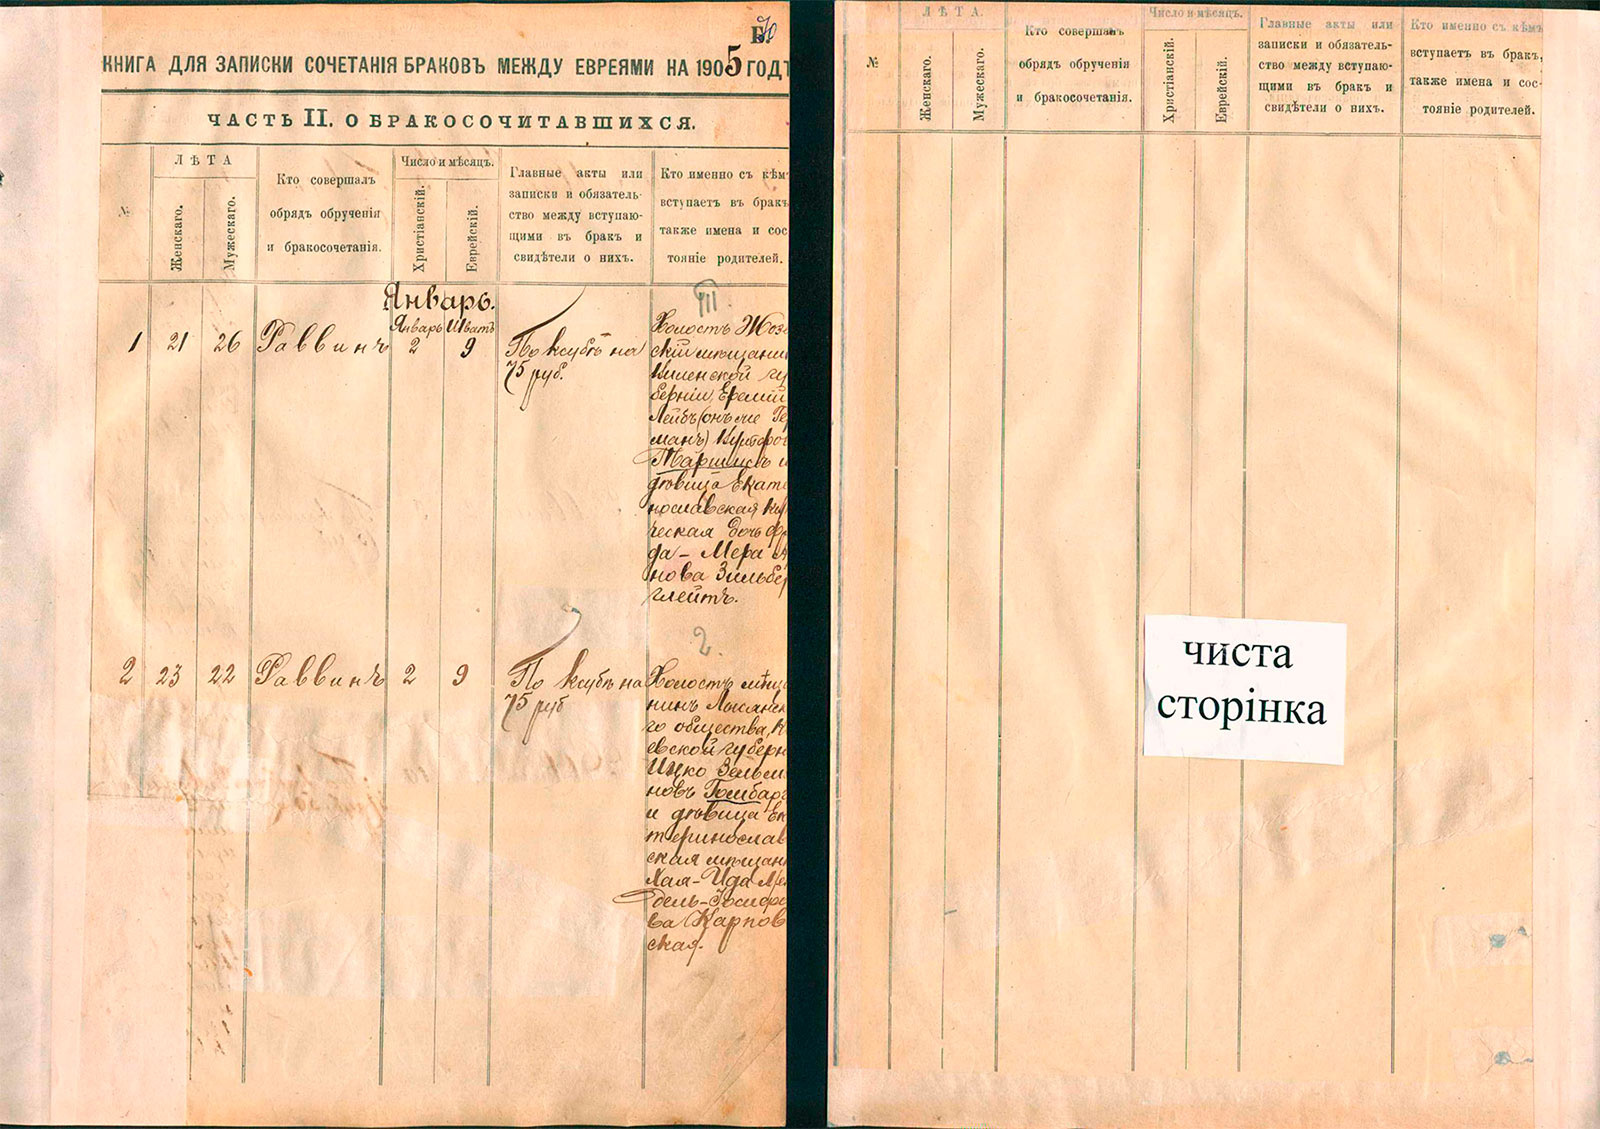 Б.
КНИГА ДЛЯ ЗАПИСКИ СОЧЕТАНІЯ БРАКОВЪ МЕЖДУ ЕВРЕЯМИ НА 1905 ГОДЪ
ЧАСТЬ II. О БРАКОСОЧИТАВШИХСЯ.
№
ЛѢТА
Женскаго.
Мужескаго.
Кто совершалъ
обрядъ обрученія
и бракосочетанія.
Число и мѣсяцъ.
Христіанскій.
Еврейскій.
Главные акты или
записки и обязатель-
ство между вступаю-
щими въ бракъ и
свидѣтели о нихъ.
Кто именно съ кѣмъ
вступаетъ въ бракъ
также имена и сос
тояніе родителей.
Январь.
1 21 26 Раввинъ
Январь Шватъ
2 9
По ксубѣ на
75 руб.
III
Холостъ
скій мѣщани
Виленской гу
берніи, Еремій
Лейбъ (онъ же Гер
манъ)
Таршисъ и
дѣвица Екате
нославская ку
ческая дочь Фр
да-Мера А
нова Зильбер
глейтъ.
2 23 22 Раввинъ 2 9
По ксубѣ на
75 руб
2.
Холостъ мѣща
нинъ Лысянск
го общества, К
евской губерн
Ицко Зельм
новъ Гомбарг
и дѣвица Ек
теринослав
ская мѣщан
Хая-Ида Мен
дель-Іосифо
ва Карпов
ская.
№
ЛѢТА.
Женскаго.
Мужескаго.
Кто совершалъ
обрядъ обрученія
и бракосочетанія.
Число и мѣсяцъ.
Христіанскій.
Еврейскій.
Главные акты или
записки и обязатель-
ство между вступаю-
щими въ бракъ и
свидѣтели о нихъ.
Кто именно съ кѣмъ
вступаетъ въ бракъ,
также имена и сос-
тояніе родителей.
чиста
сторінка